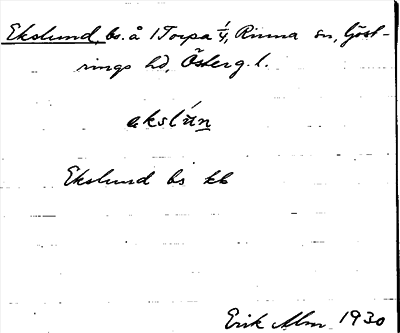 Ekslund, bs. å 1 Torpa 1/4, Rinna sn, Göst-
rings hd, Österg. l.
ekslun
Ekslund bs kb
Erik Alm 1930